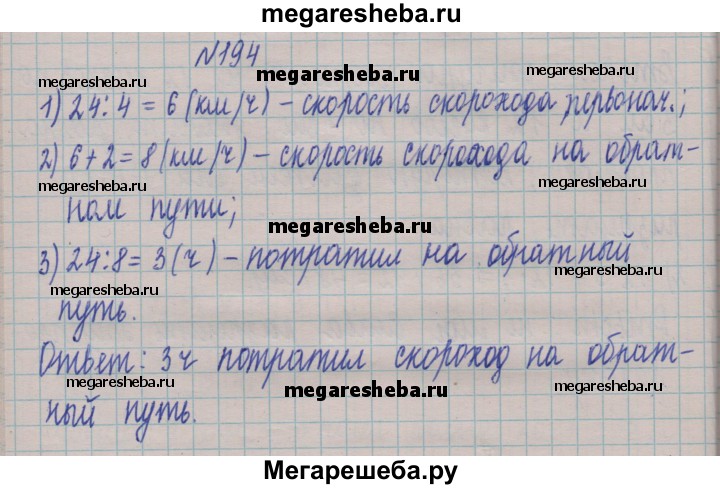 megaresheba.ru
№194
megaresheba.ru
megaresheba.ru
megaresheba.ru
1) 24:4 = 6 (км/ч) – скорость скорохода первонач.;
megaresheba.ru
megaresheba.ru
2) 6+2=8 (км/ч) – скорость скорохода на обрат-
megaresheba.ru
ном пути;
megaresheba.ru
3) 24:8= 3 (ч) – потратил на обратный
megaresheba.ru
megaresheba.ru
путь.
Ответ: 3ч потратил скороход на обрат-
megaresheba.ru
megaresheba.ru
megaresheba.ru
ный путь.
Мегарешеба.ру